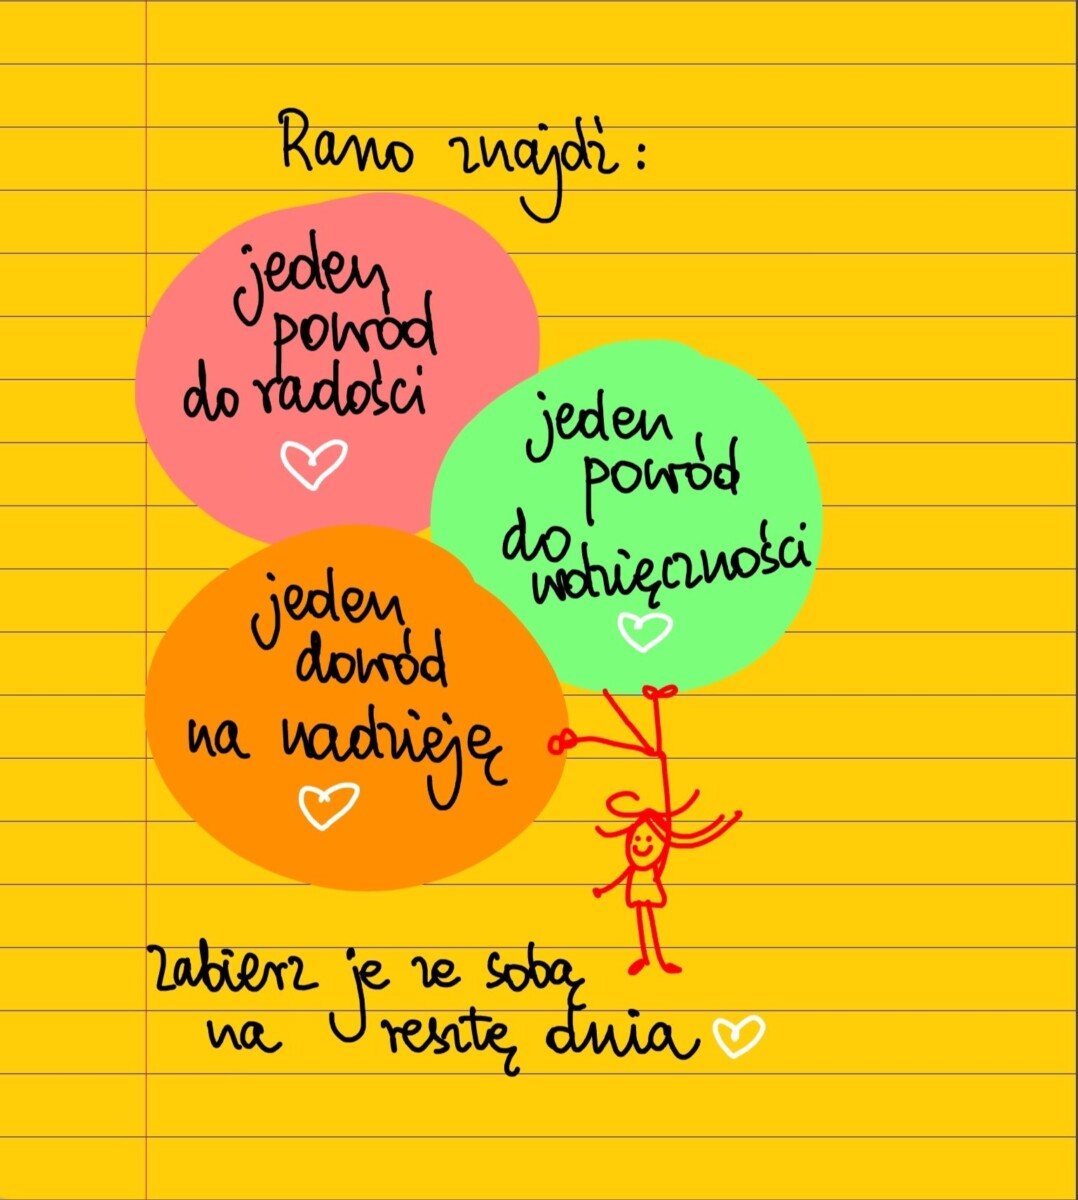 Rano znajdź:
jeden
powód
do radości
jeden
powód
do
wdzięczności
jeden
dowód
na nadzieję
zabierz je ze sobą
na resztę dnia